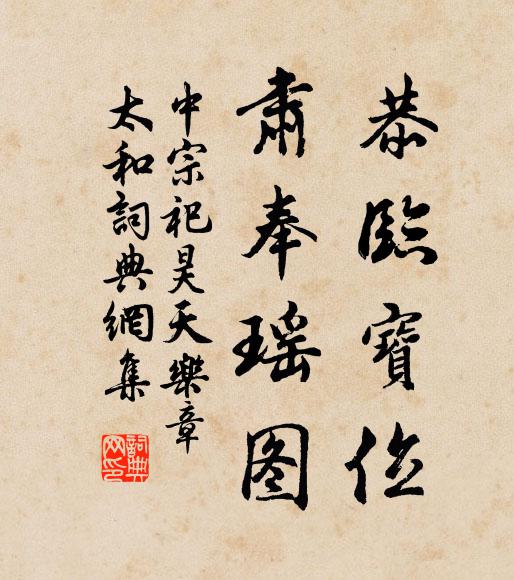 恭臨寶位
肅奉瑶图
中宗祀昊天樂章
太和詞典網集
詞典网印